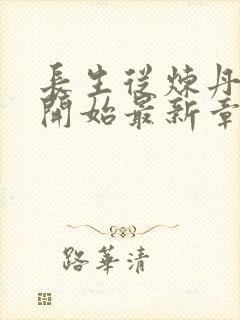 長生從煉丹
開始最新章
路華清